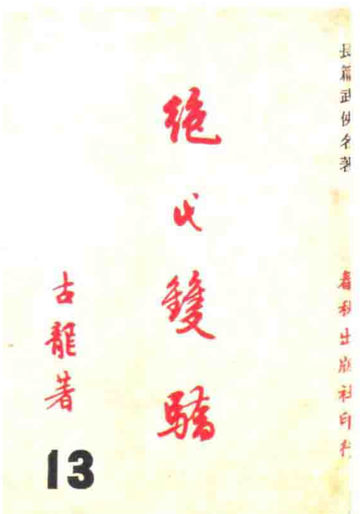 長篇武俠名著
春秋出版社印行
絕代雙驕
古龍著
13